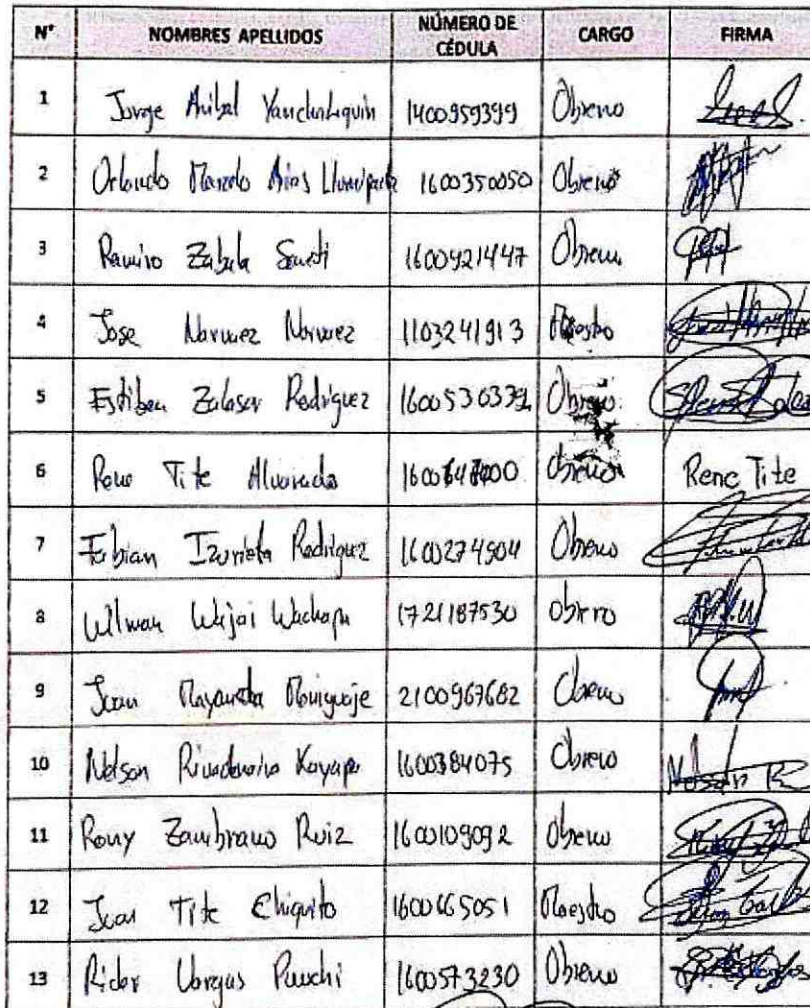 N° NOMBRES APELLIDOS NÚMERO DE CÉDULA CARGO FIRMA
1 Jorge Anibal 1400959399 Obrero
2 Orlando 1600350050 Obrero
3 Ramiro Zabala 1600921447 Obrero
4 Jose Narvaez Narvaez 1103241913 Maestro
5 Estiben Zalasar Rodriguez Obrero
6 Rene Tite Alvarado Obrero Rene Tite
7 Fabian Izurieta Rodriguez 1600274904 Obrero
8 Wilman Wajai Wachapa 1721187530 obrero
9 Juan 2100967682 Obrero
10 Nelson Rivadeneira Kayapa 1600384075 Obrero Nelson R
11 Rony Zambrano Ruiz 1600109092 Obrero
12 Juan Tite Chiquito 1600465051 Maestro
13 Rider Vargas 1600573230 Obrero